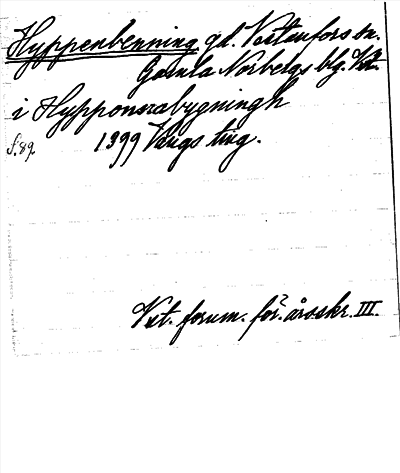 Hyppenbenning gd. Västanfors sn.
Gamla Norbergs blg. Vstl.
i Hypponszabygningh
f. 89. 1399 Vangs ting.
Vst. fornm. för. årsskr. III.